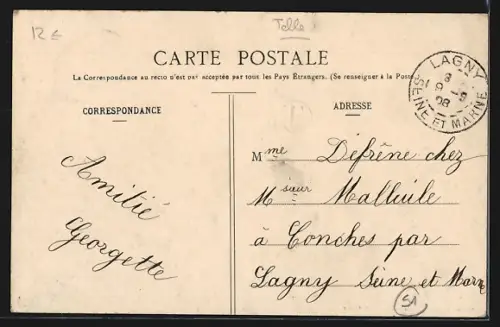 12 €
Tolle
CARTE POSTALE
La Correspondance au recto n'est pas acceptée par tous les Pays Étrangers. (Se renseigner à la Poste
CORRESPONDANCE
ADRESSE
LAGNY
SEINE ET MARNE
8
9 -9
08
Amitié
Georgette
Mme Défrène chez
Msieur Mallvile
à Conches par
Lagny Seine et Marne
51